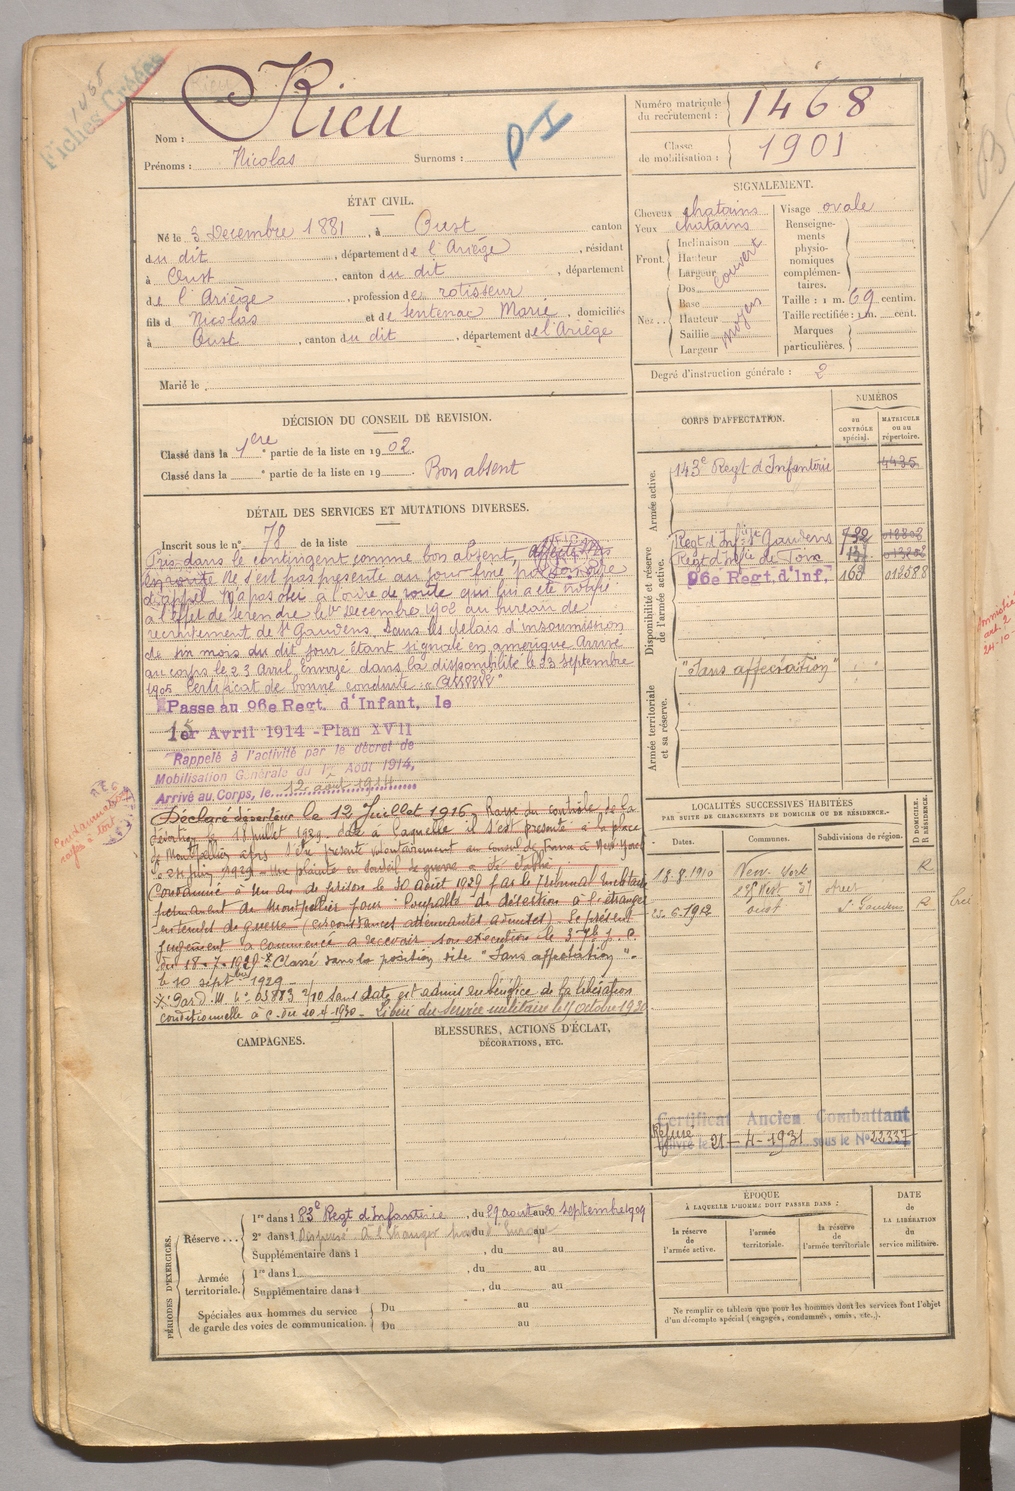 1468
Fiches Créées
Rieu
Nom :
Prénoms : Nicolas Surnoms :
Numéro matricule du recrutement : 1468
Classe de mobilisation : 1901
ÉTAT CIVIL.
Né le 3 Decembre 1881, à Oust canton
du dit, département de l'Ariège, résidant
à Oust, canton du dit, département
de l'Ariège, profession de rotisseur
fils d Nicolas et de Sentenac Marie, domiciliés
à Oust, canton du dit, département de l'Ariège
Marié le
SIGNALEMENT.
Cheveux chatains
Yeux chatains
Front. Inclinaison
Hauteur
Largeur
couvert
Nez... Dos
Base
Hauteur
Saillie
Largeur
moyen
Visage ovale
Renseignements physionomiques complémentaires.
Taille : 1 m. 69 centim.
Taille rectifiée : 1 m. cent.
Marques particulières.
Degré d'instruction générale : 2
DÉCISION DU CONSEIL DE REVISION.
Classé dans la 1ere partie de la liste en 1902.
Classé dans la ° partie de la liste en 19 Bon absent
CORPS D'AFFECTATION.
NUMÉROS
au contrôle spécial.
matricule ou au répertoire.
Armée active.
143e Regt d'Infanterie 4435
Disponibilité et réserve de l'armée active.
Regt d'Infie St Gaudens 732
Regt d'Infie de Foix
96e Regt. d'Inf. 163 012588
Armée territoriale et sa réserve.
"Sans affectation"
DÉTAIL DES SERVICES ET MUTATIONS DIVERSES.
Inscrit sous le n° 78 de la liste
Pris dans le contingent comme bon absent,
en route Ne s'est pas présenté au jour fixé par son ordre
d'appel. N'a pas obéi à l'ordre de route qui lui a été notifié
à l'effet de se rendre le 1er Decembre 1902 au bureau de
recrutement de St Gaudens. Dans les délais d'insoumission
de six mois du dit jour étant signalé en amerique Arrivé
au corps le 23 Avril Envoyé dans la disponibilité le 23 septembre
1905 Certificat de bonne conduite : "Accordé"
Passe au 96e Regt. d'Infant. le
1er Avril 1914 - Plan XVII
Rappelé à l'activité par le décret de
Mobilisation Générale du 1er Août 1914,
Arrivé au Corps, le 12 août 1914
Déclaré déserteur le 12 Juillet 1916. Rayé du contrôle de la
désertion le 18 juillet 1929 date à laquelle il s'est présenté à la place
de Montpellier après s'être présenté volontairement au Consul de France à New-York
le 24 juin 1929 - Une plainte en conseil de guerre a été établie.
Condamné à un an de prison le 30 août 1929 par le Tribunal militaire
permanent de Montpellier pour : Coupable de désertion à l'étranger
en temps de guerre (circonstances atténuantes admises). Le présent
jugement a commencé à recevoir son exécution le
du 18-7-1929 Classé dans la position dite "Sans affectation".
le 10 septbre 1929 -
Par D. M. n° 03883 2/10 sans date est admis au bénéfice de la libération
conditionnelle à c. du 10-4-1930 - Libéré du service militaire le 15 octobre 1930
LOCALITÉS SUCCESSIVES HABITÉES
PAR SUITE DE CHANGEMENTS DE DOMICILE OU DE RÉSIDENCE.
Dates. Communes. Subdivisions de région. D DOMICILE. R RÉSIDENCE.
18.8.1910 New York R
West street
22.6.1912 Oust St Gaudens R
CAMPAGNES.
BLESSURES, ACTIONS D'ÉCLAT,
DÉCORATIONS, ETC.
Certificat Ancien Combattant
Refusé
délivré le 21-4-1931 sous le N° 22337
PÉRIODES D'EXERCICES.
Réserve.... 1re dans l 83e Regt d'Infanterie, du 29 août au 20 septembre 1909
2e dans l Dispensé A l'étranger hors d'Europe du au
Supplémentaire dans l , du au
Armée territoriale. 1re dans l , du au
Supplémentaire dans l , du au
Spéciales aux hommes du service de garde des voies de communication. Du au
Du au
ÉPOQUE
À LAQUELLE L'HOMME DOIT PASSER DANS :
la réserve de l'armée active.
l'armée territoriale.
la réserve de l'armée territoriale
DATE
DE LA LIBÉRATION DU service militaire.
Ne remplir ce tableau que pour les hommes dont les services font l'objet
d'un décompte spécial (engagés, condamnés, omis, etc.).
Amnistié
art. 2